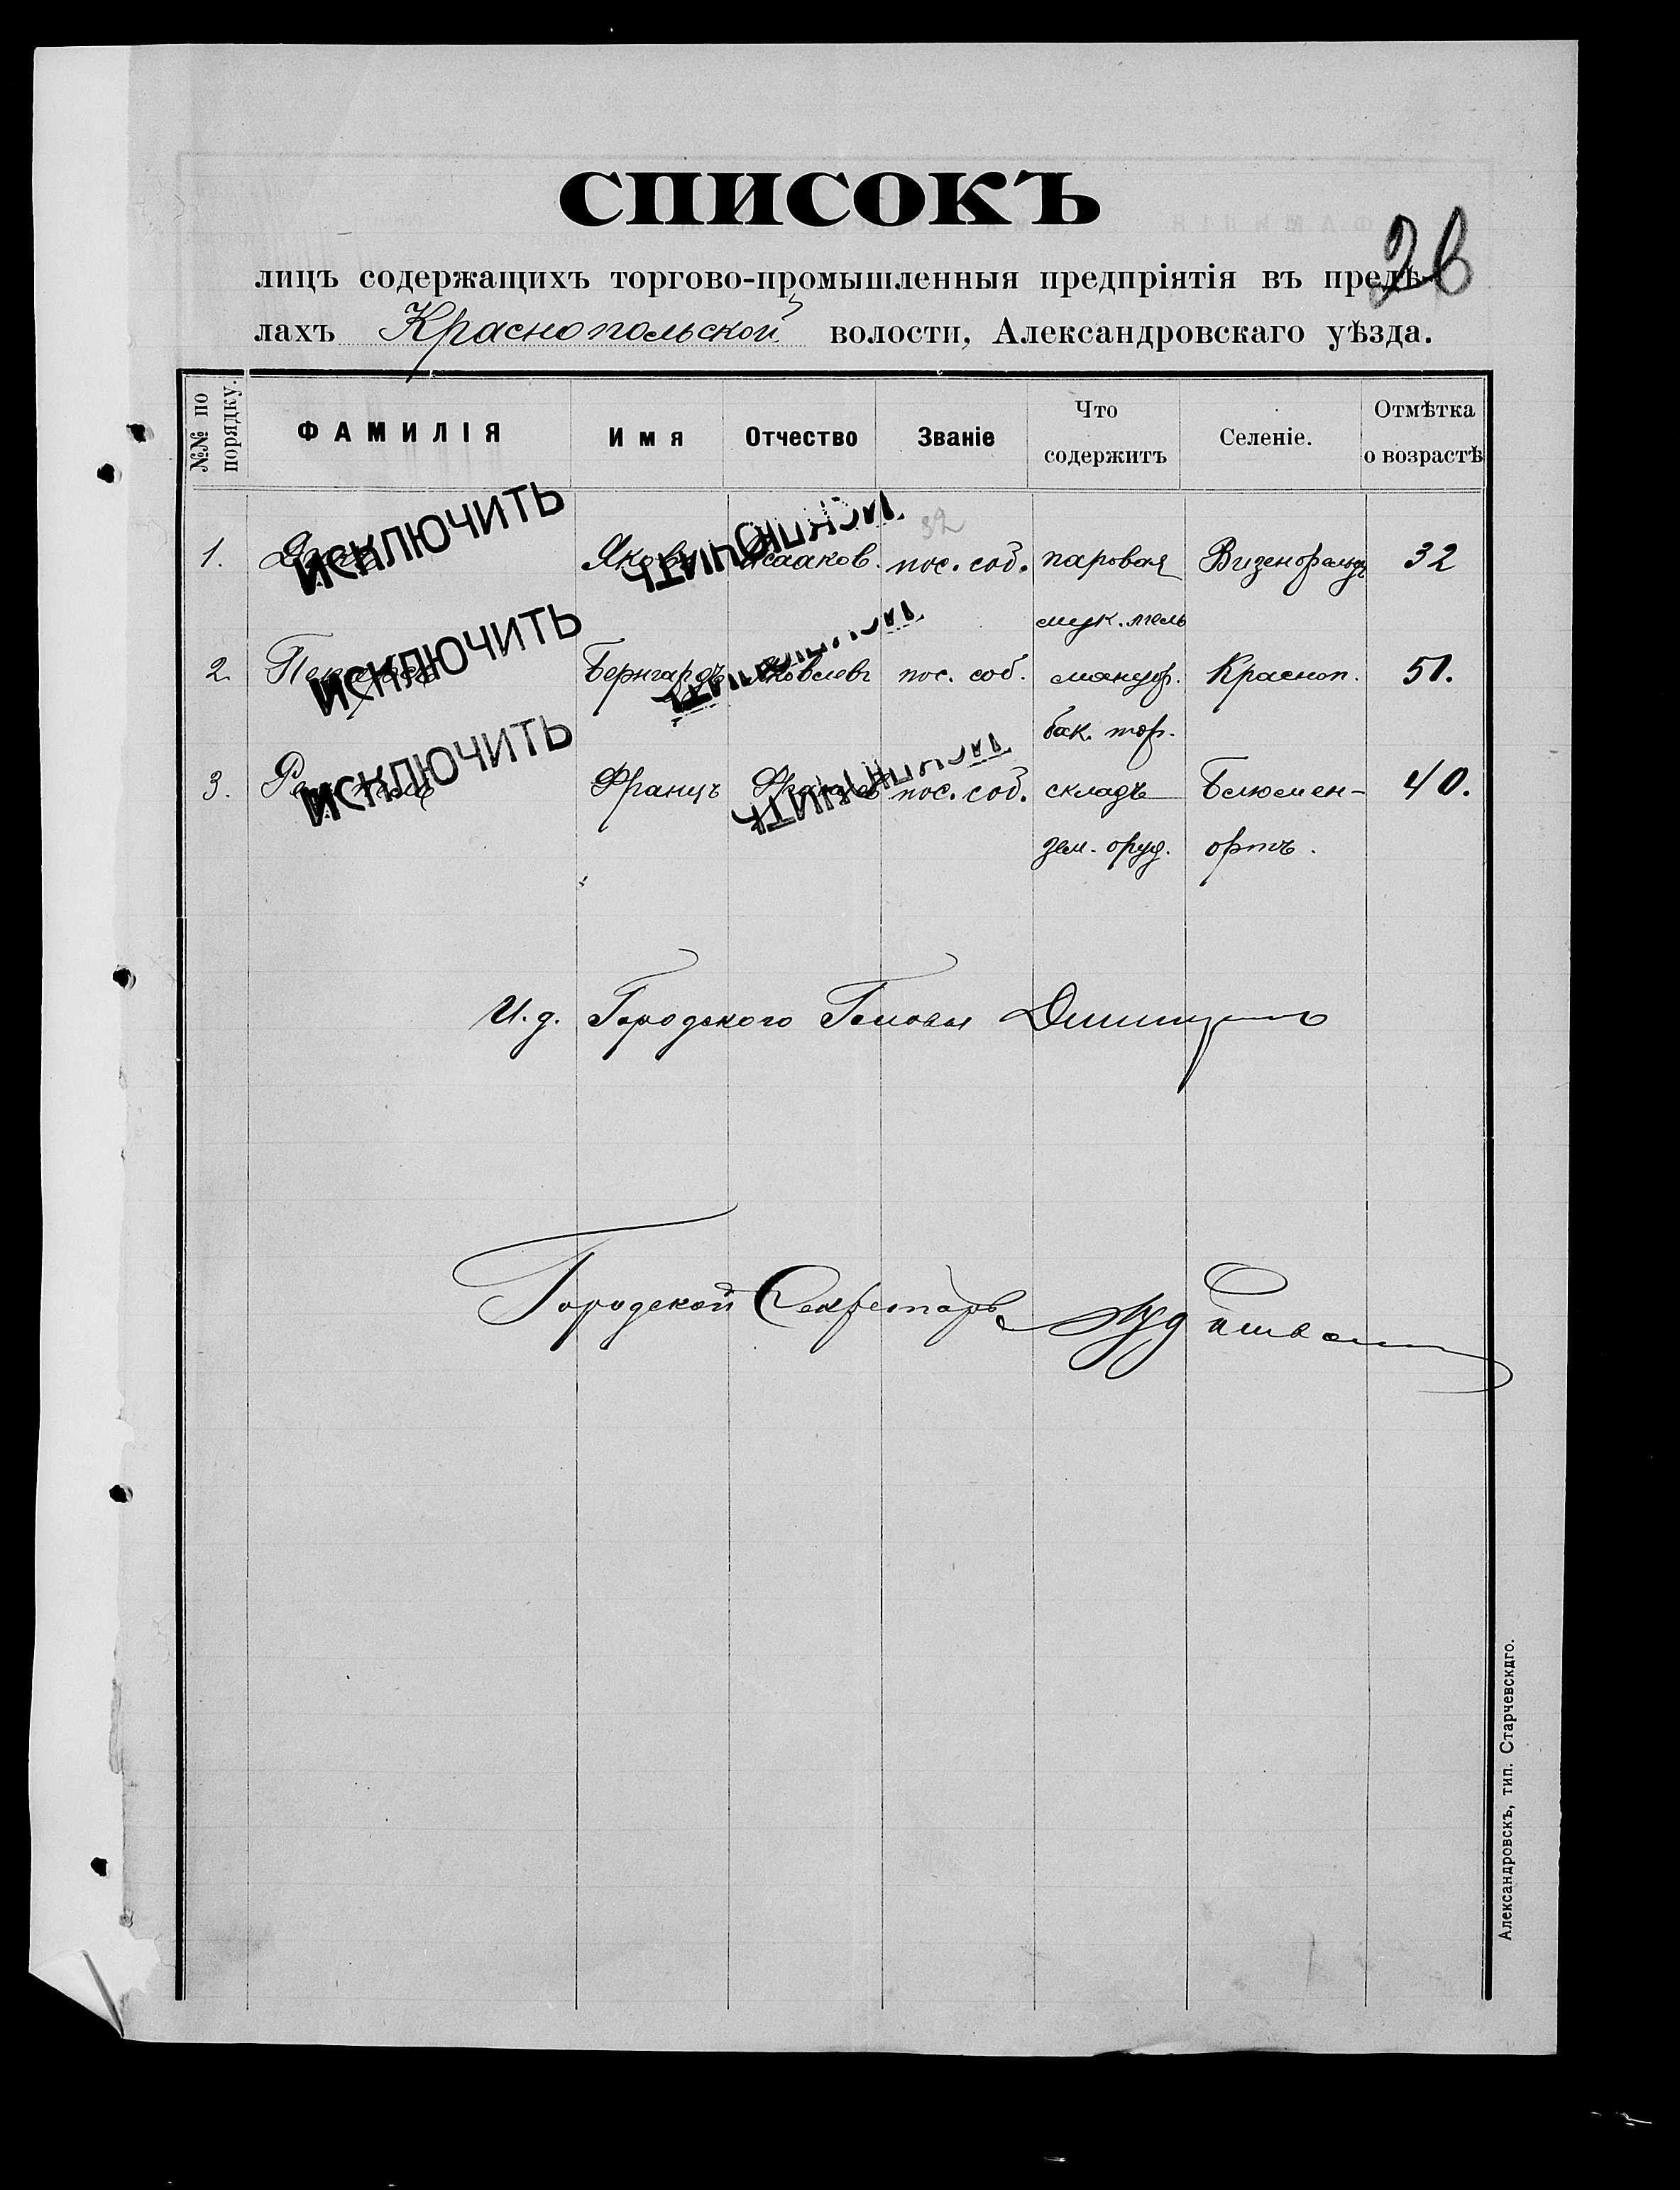 СПИСОКЪ
28
лицъ содержащихъ торгово-промышленныя предпріятія въ предѣ-
лахъ Краснопольской волости, Александровскаго уѣзда.
№№ по порядку. ФАМИЛІЯ Имя Отчество Званіе Что содержитъ Селеніе. Отмѣтка о возрастѣ
ИСКЛЮЧИТЬ ИСКЛЮЧИТЬ 32
1. Яковъ Исааков. пос. соб. паровая Визенфельдъ 32
мук. мель
ИСКЛЮЧИТЬ ИСКЛЮЧИТЬ
2. Бернгардъ Яковлевъ пос. соб. мануф. Красноп. 51.
бак. тор.
ИСКЛЮЧИТЬ ИСКЛЮЧИТЬ
3. Францъ Францев пос. соб. складъ Блюмен- 40.
зем. оруд. ортъ.
И. д. Городского Головы
Городской Секретарь
Александровскъ, тип. Старчевскдго.